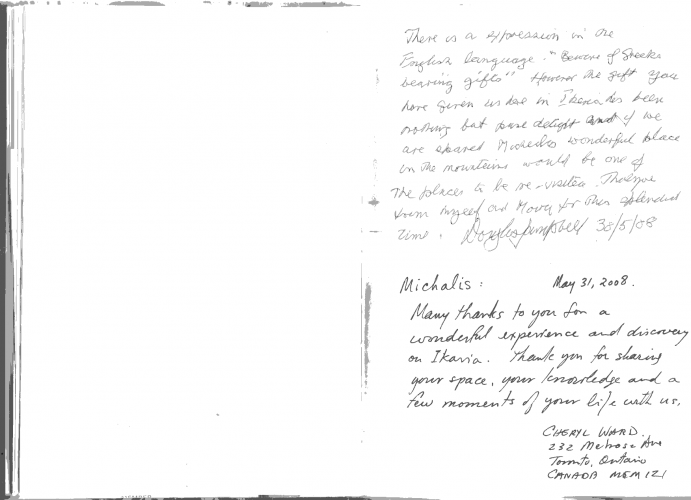 There is a expression in the
English language. "Beware of Greeks
bearing gifts" However the gift you
have given us here in Ikaria has been
nothing but pure delight and if we
are spared Michalis wonderful place
in the mountains would be one of
the places to be re-visited. Thankyou
from myself and for this splendid
time. 30/5/08
Michalis: May 31, 2008.
Many thanks to you for a
wonderful experience and discovery
on Ikaria. Thank you for sharing
your space, your knowledge and a
few moments of your life with us.
CHERYL WARD.
232 Melrose Ave
Toronto, Ontario
CANADA M5M 1Z1